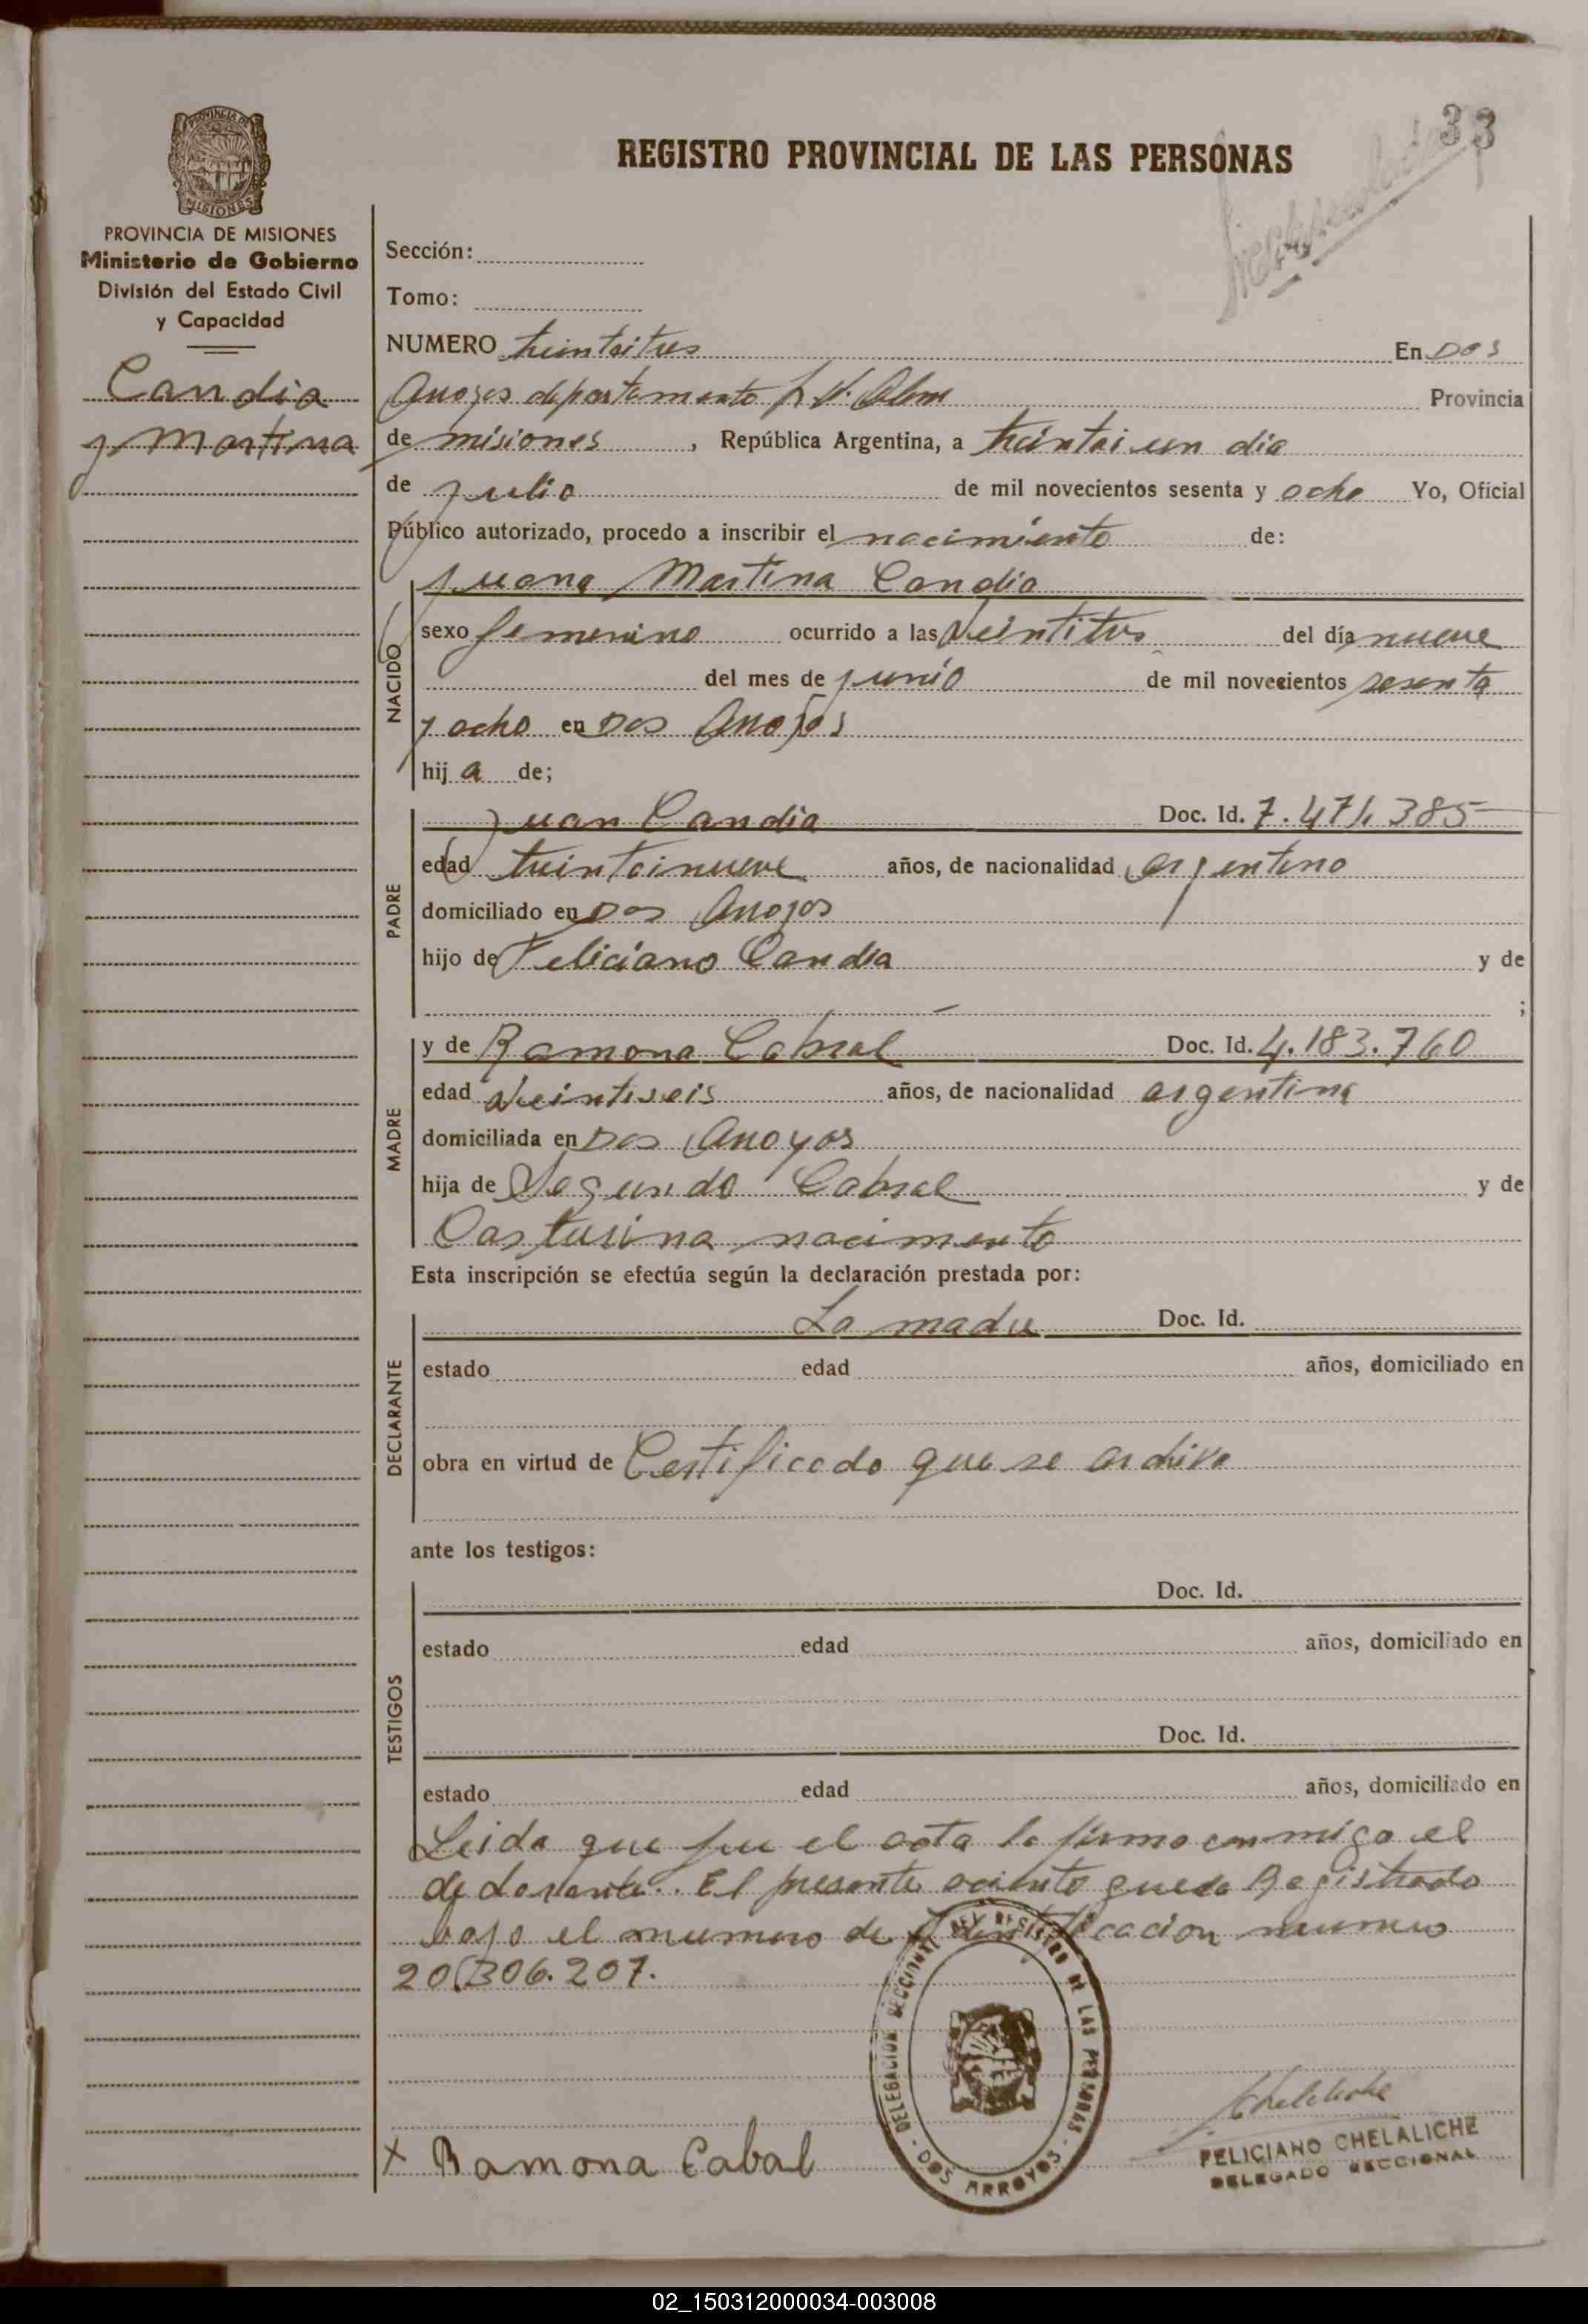 33
PROVINCIA DE MISIONES
REGISTRO PROVINCIAL DE LAS PERSONAS
PROVINCIA DE MISIONES
Ministerio de Gobierno
División del Estado Civil
y Capacidad
Candia
J Martina
Sección:
Tomo:
NUMERO treintaitres En Dos
Arroyos departamento L. N. Alem Provincia
de misiones, República Argentina, a treintai un dia
de julio de mil novecientos sesenta y ocho Yo, Oficial
Público autorizado, procedo a inscribir el nacimiento de:
Juana Martina Candia
NACIDO
sexo femenino ocurrido a las veintitres del día nueve
del mes de junio de mil novecientos sesenta
y ocho en Dos Arroyos
hij a de;
PADRE
Juan Candia Doc. Id. 7.471.385
edad treintainueve años, de nacionalidad argentino
domiciliado en Dos Arroyos
hijo de Feliciano Candia y de
;
MADRE
y de Ramona Cabral Doc. Id. 4.183.760
edad veintiseis años, de nacionalidad argentina
domiciliada en Dos Arroyos
hija de Segundo Cabral y de
nacimento
Esta inscripción se efectúa según la declaración prestada por:
DECLARANTE
La madre Doc. Id.
estado edad años, domiciliado en
obra en virtud de Certificado que se archiva
ante los testigos:
TESTIGOS
Doc. Id.
estado edad años, domiciliado en
Doc. Id.
estado edad años, domiciliado en
Leida que fue el acta la firma conmigo el
declarante. El presente aciento queda Registrado
bajo el numero de Identificacion numero
20.306.207.
DELEGACION SECCIONAL DEL REGISTRO DE LAS PERSONAS - DOS ARROYOS -
x Ramona Cabal
Chelaliche
FELICIANO CHELALICHE
DELEGADO SECCIONAL
02_150312000034-003008